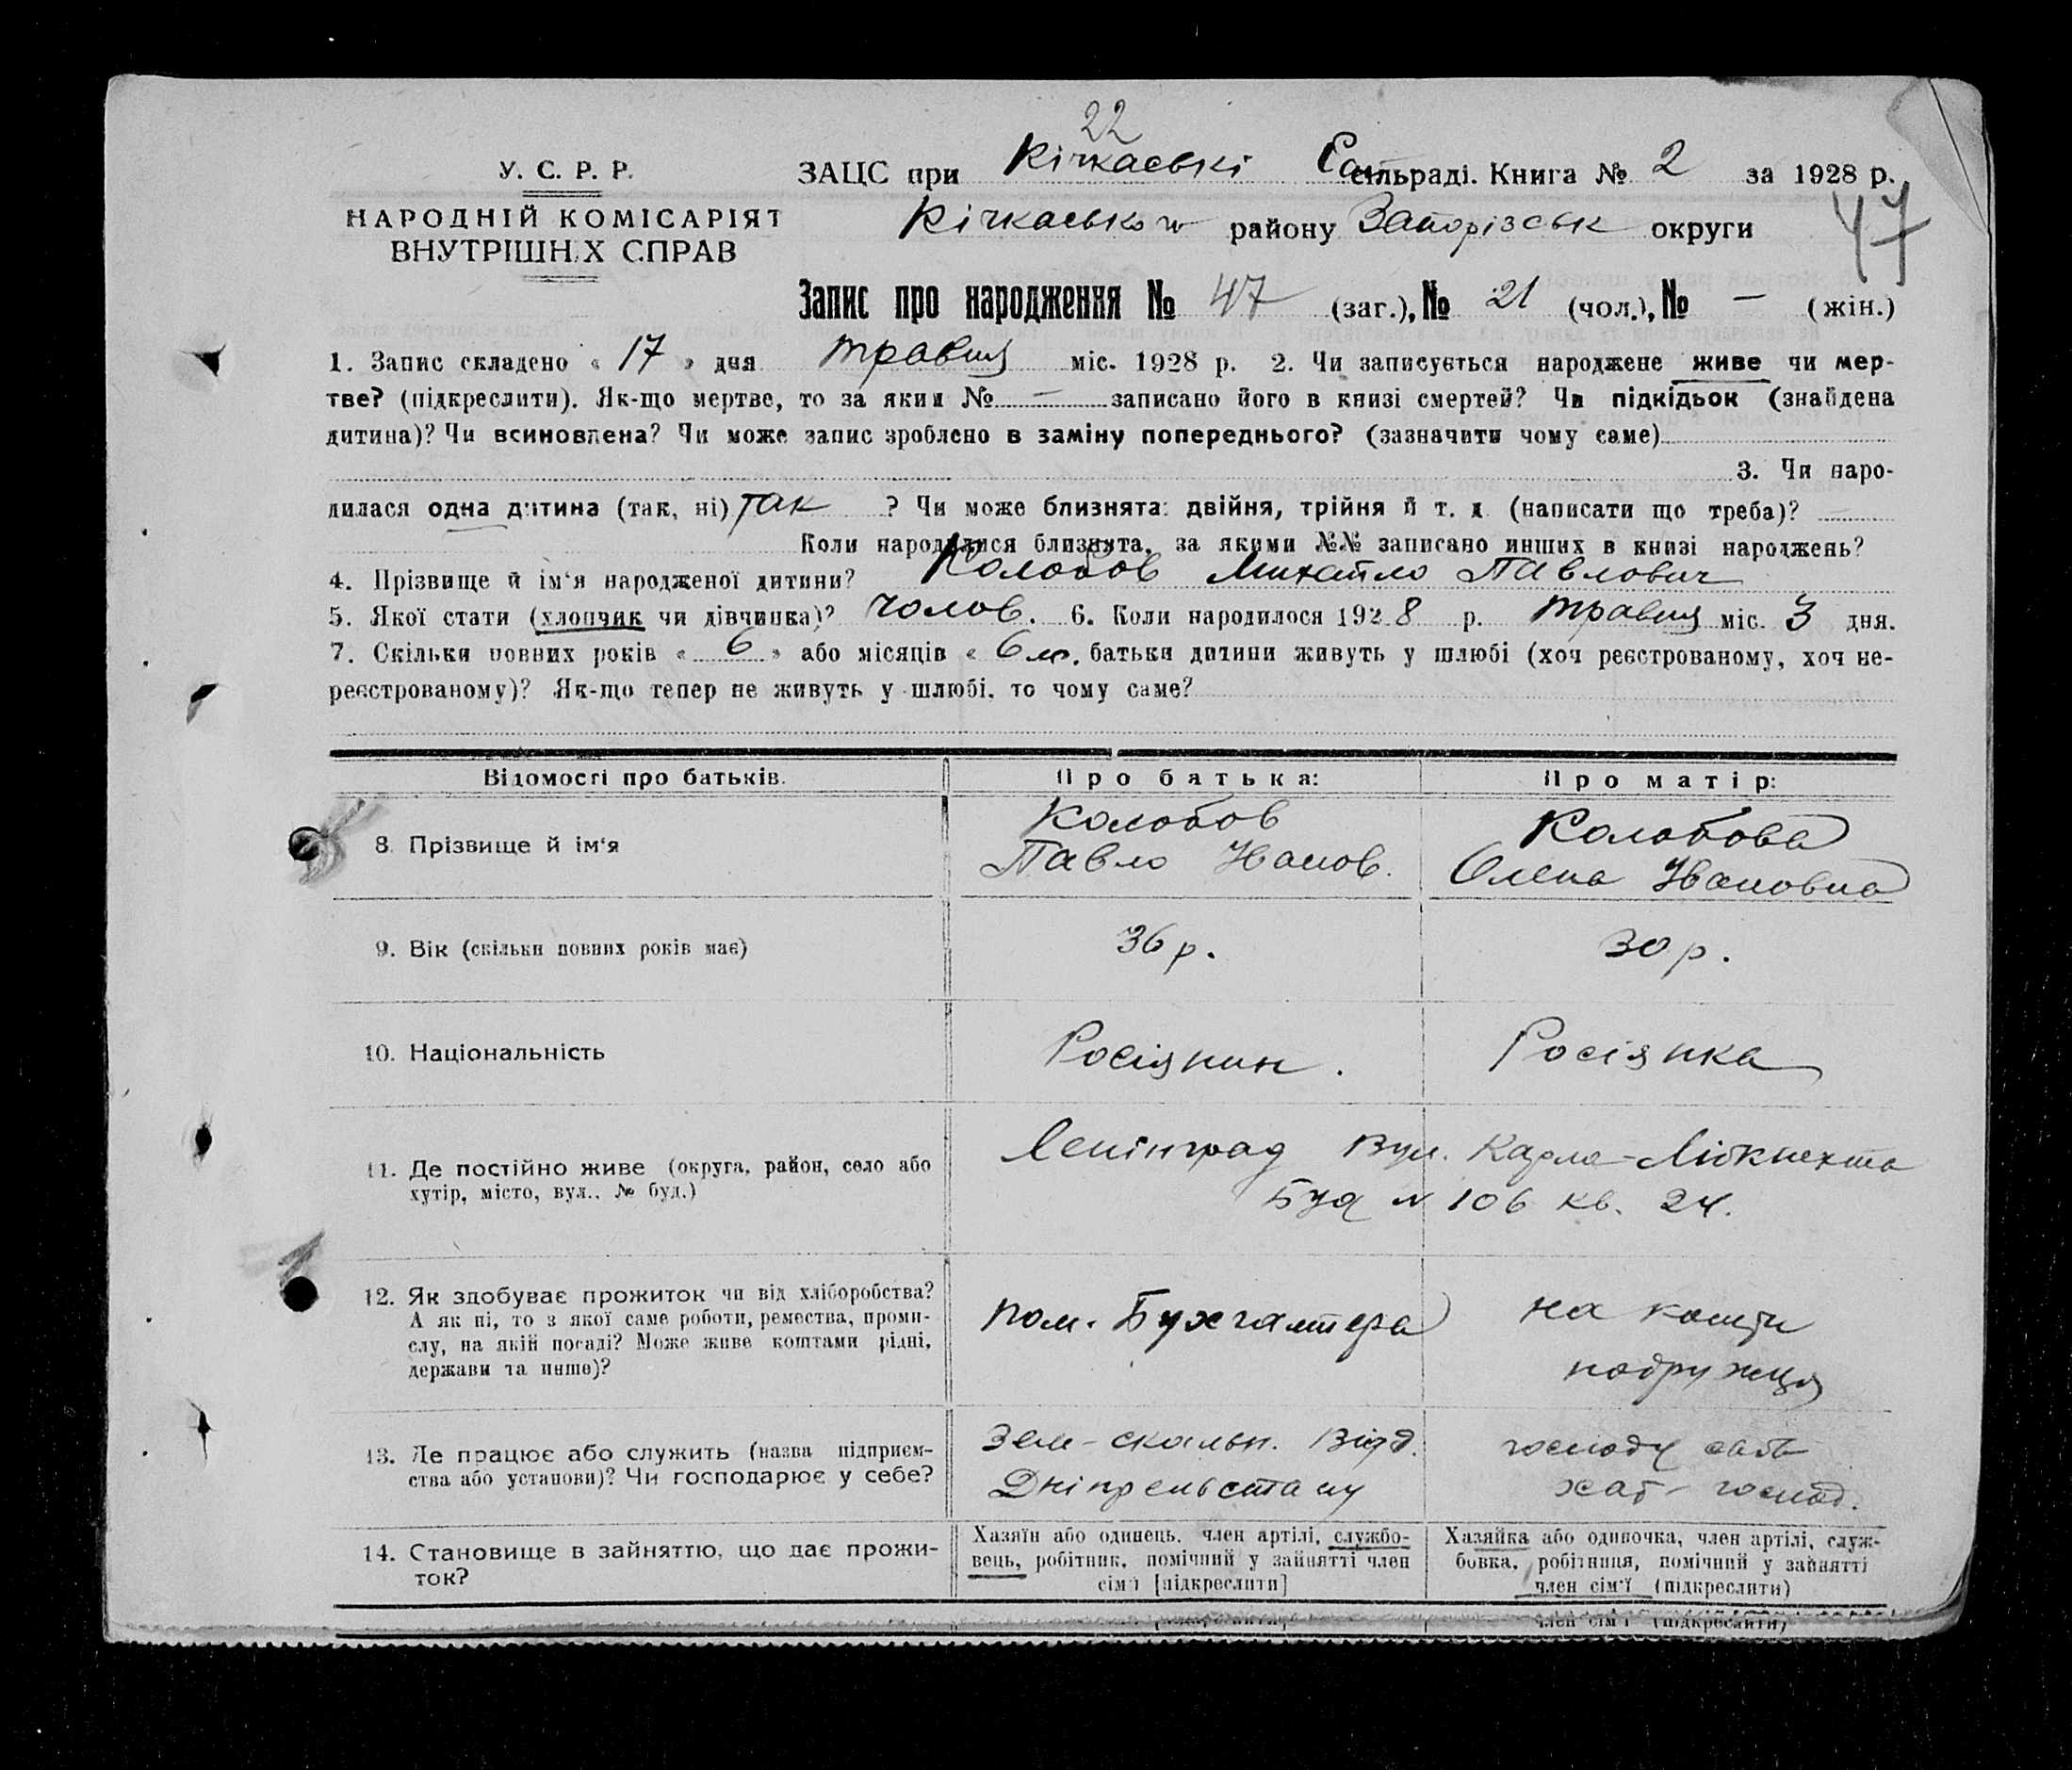 22
У. С. Р. Р.
ЗАЦС при Кічкаські сільраді. Книга № 2 за 1928 р.
47
НАРОДНІЙ КОМІСАРІЯТ
ВНУТРІШНІХ СПРАВ
Кічкаськ району Запорізськ округи
Запис про народження № 47 (заг.), № 21 (чол.), № — (жін.)
1. Запис складено « 17 » дня травня міс. 1928 р. 2. Чи записується народжене живе чи мер-
тве? (підкреслити). Як-що мертве, то за яким № — записано його в книзі смертей? Чи підкідьок (знайдена
дитина)? Чи всиновлена? Чи може запис зроблено в заміну попереднього? (зазначити чому саме)
3. Чи наро-
дилася одна дитина (так, ні) так ? Чи може близнята: двійня, трійня й т. д. (написати що треба)?
Коли народилися близнята, за якими №№ записано инших в книзі народжень?
4. Прізвище й ім'я народженої дитини? Колобов Михайло Павлович
5. Якої стати (хлопчик чи дівчинка)? Чолов. 6. Коли народилося 1928 р. травня міс. 3 дня.
7. Скільки повних років « 6 » або місяців « 6 м. батьки дитини живуть у шлюбі (хоч реєстрованому, хоч не-
реєстрованому)? Як-що тепер не живуть у шлюбі, то чому саме?
Відомості про батьків.
Про батька:
Про матір:
8. Прізвище й ім'я
Колобов
Павло Иванов.
Колобова
Олена Ивановна
9. Вік (скільки повних років має)
36 р.
30 р.
10. Національність
Росіянин.
Росіянка
11. Де постійно живе (округа, район, село або
хутір, місто, вул., № буд.)
Ленінград Вул. Карла-Лібкнехта
Буд № 106 кв. 24.
12. Як здобуває прожиток чи від хліборобства?
А як ні, то з якої саме роботи, ремества, проми-
слу, на якій посаді? Може живе коштами рідні,
держави та инше)?
пом. Бухгалтера
на кошти
подружця
13. Де працює або служить (назва підприєм-
ства або установи)? Чи господарює у себе?
Зем-скальн. Відд.
Дніпрельстану
хат- господ.
14. Становище в зайняттю, що дає прожи-
ток?
Хазяїн або одинець, член артілі, службо-
вець, робітник, помічний у зайнятті член
сім'ї [підкреслити]
Хазяйка або одиночка, член артілі, служ-
бовка, робітниця, помічний у зайнятті
член сім'ї (підкреслити)
член сім'ї (підкреслити)